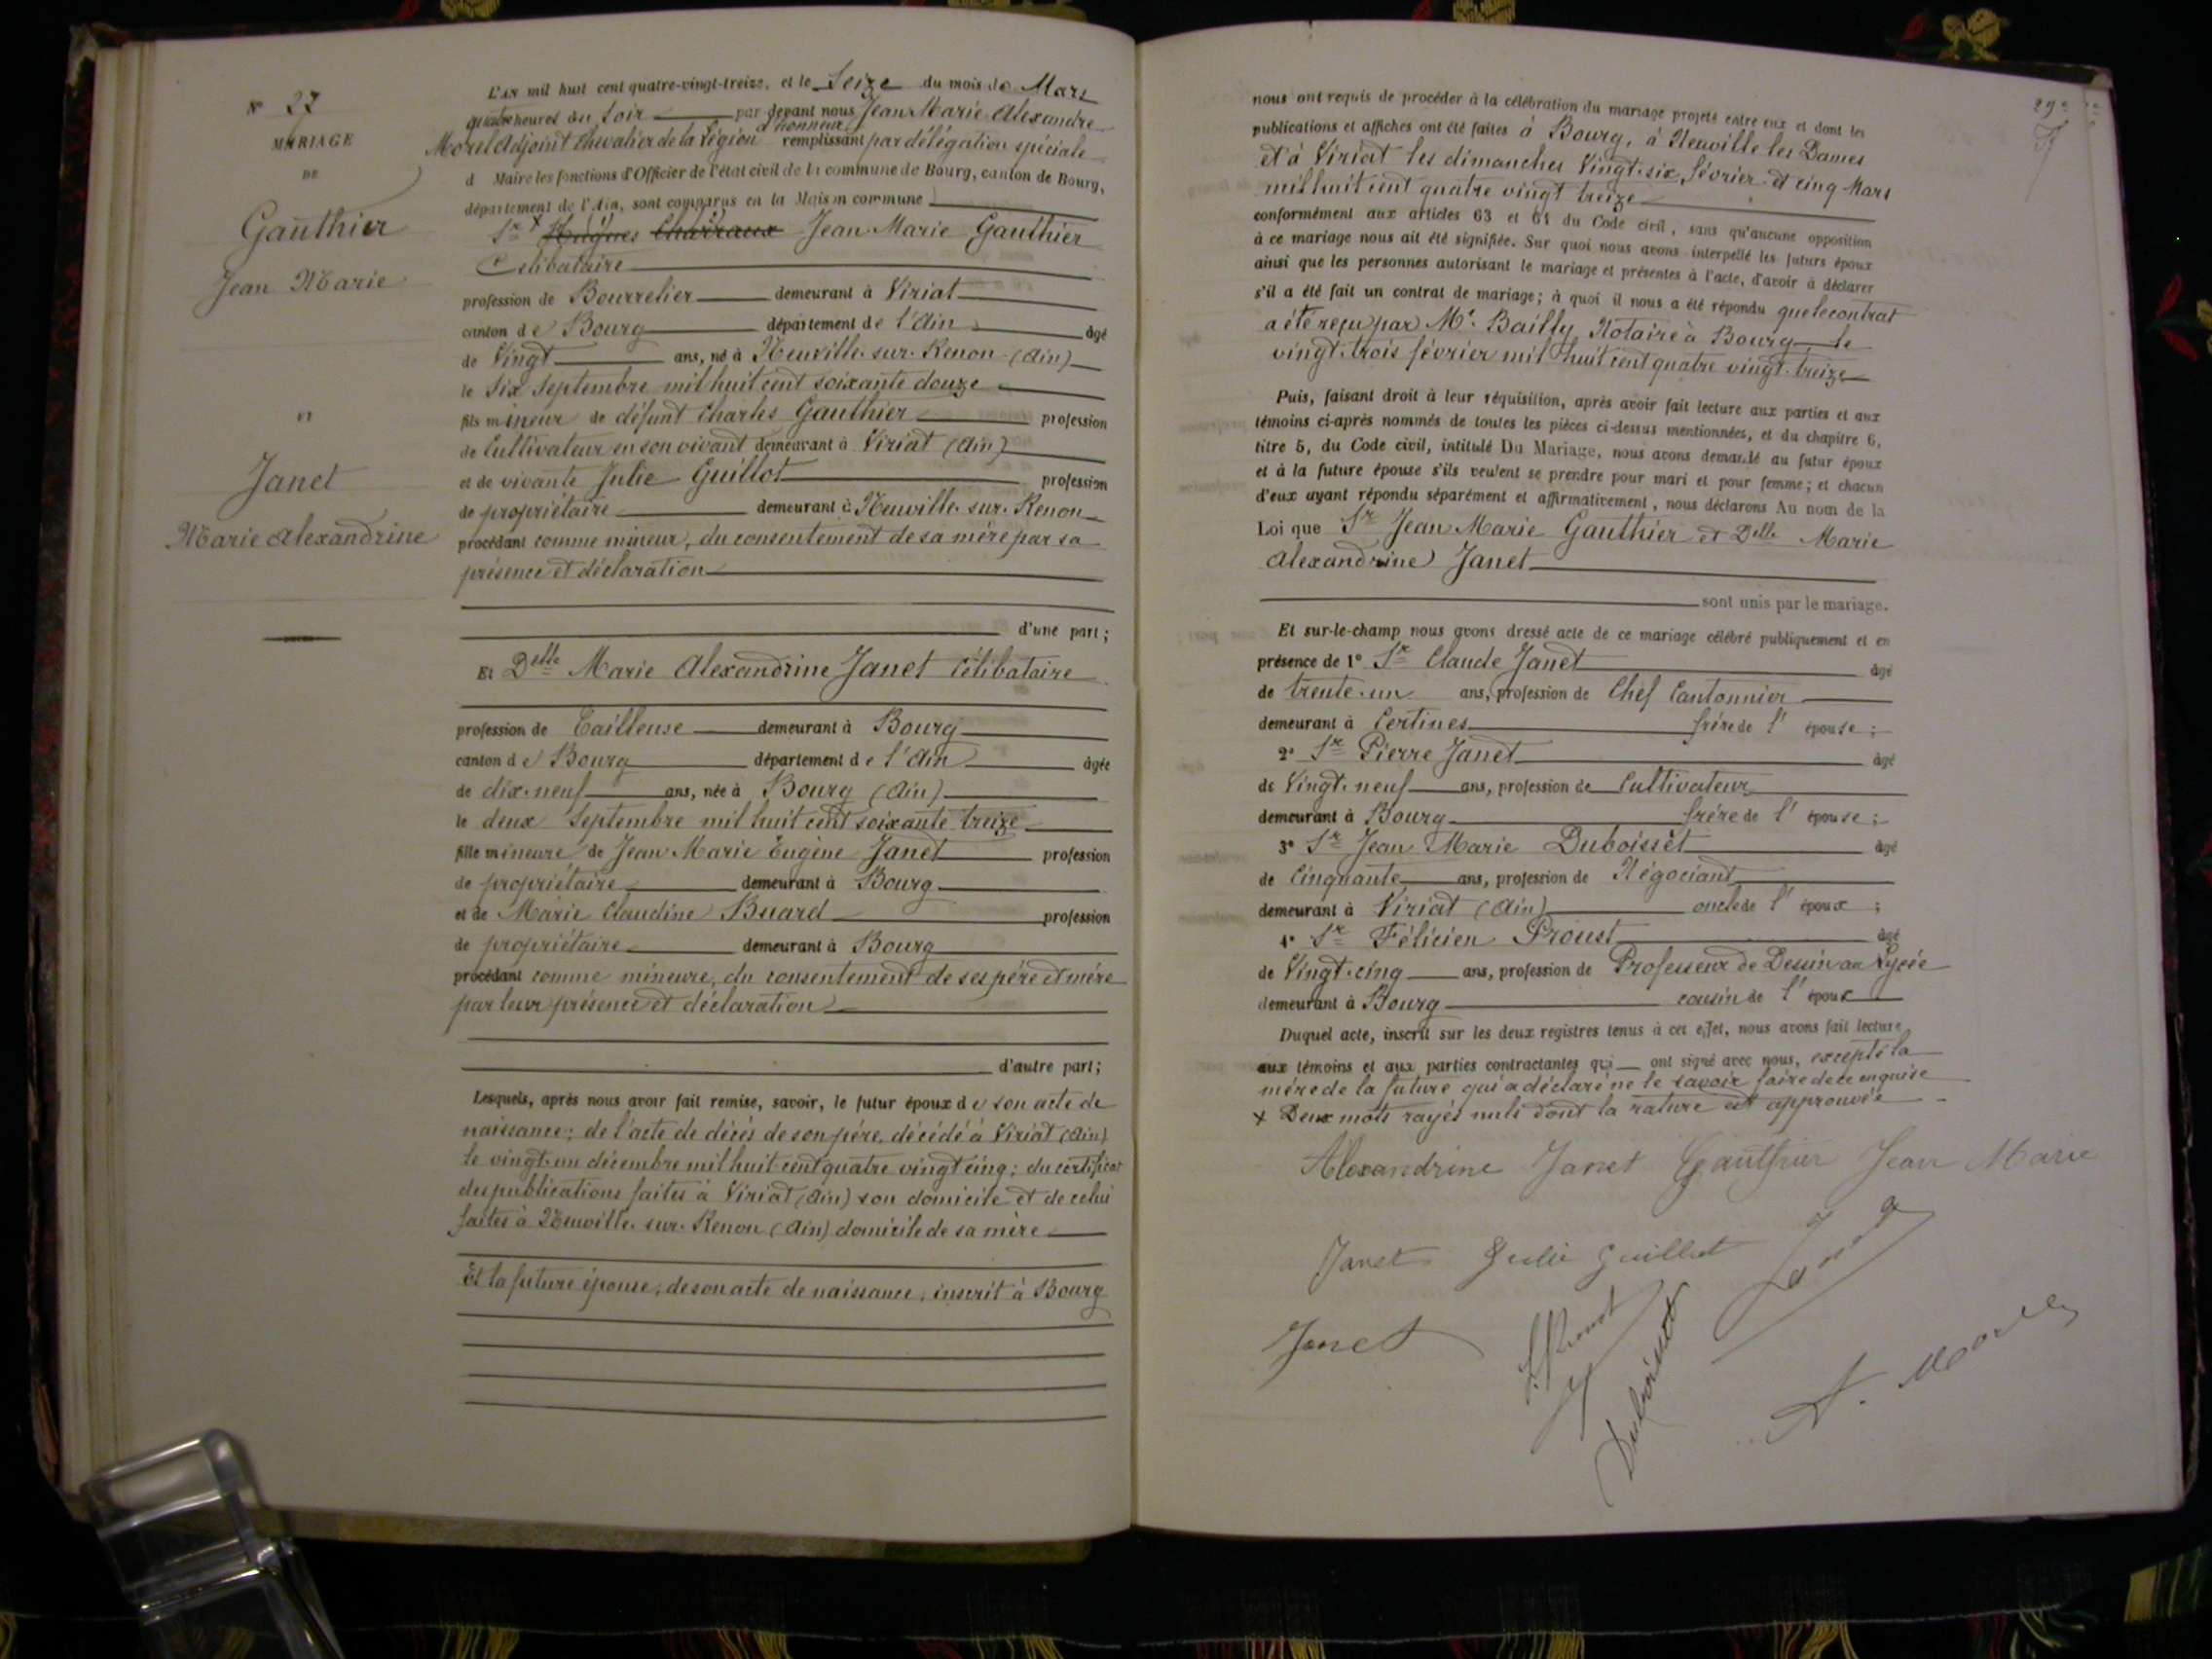 N° 27
MARIAGE
DE
Gauthier
Jean Marie
ET
Janet
Marie Alexandrine
L'AN mil huit cent quatre-vingt-treize, et le Seize du mois de Mars
quatre heures du Soir par devant nous Jean Marie Alexandre
Morel Adjoint Chevalier de la Légion d'honneur remplissant par délégation spéciale
d Maire les fonctions d'Officier de l'état civil de la commune de Bourg, canton de Bourg,
département de l'Ain, sont comparus en la Maison commune
Sr × Hugues Charraux Jean Marie Gauthier
Célibataire
profession de Bourrelier demeurant à Viriat
canton de Bourg département de l'Ain âgé
de Vingt ans, né à Neuville-sur-Renon (Ain)
le Six Septembre mil huit cent soixante douze
fils mineur de défunt Charles Gauthier profession
de Cultivateur en son vivant demeurant à Viriat (Ain)
et de vivante Julie Guillot profession
de propriétaire demeurant à Neuville-sur-Renon
procédant comme mineur, du consentement de sa mère par sa
présence et déclaration
d'une part;
Et Delle Marie Alexandrine Janet Célibataire
profession de Tailleuse demeurant à Bourg
canton de Bourg département de l'Ain âgée
de dix-neuf ans, née à Bourg (Ain)
le deux Septembre mil huit cent soixante treize
fille mineure de Jean Marie Eugène Janet profession
de propriétaire demeurant à Bourg
et de Marie Claudine Buard profession
de propriétaire demeurant à Bourg
procédant comme mineure, du consentement de ses père et mère
par leur présence et déclaration
d'autre part;
Lesquels, après nous avoir fait remise, savoir, le futur époux de son acte de
naissance; de l'acte de décès de son père, décédé à Viriat (Ain)
le vingt-un décembre mil huit cent quatre vingt cinq; du certificat
des publications faites à Viriat (Ain) son domicile et de celui
faites à Neuville-sur-Renon (Ain) domicile de sa mère
Et la future épouse, de son acte de naissance, inscrit à Bourg
29e
nous ont requis de procéder à la célébration du mariage projeté entre eux et dont les
publications et affiches ont été faites à Bourg, à Neuville les Dames
et à Viriat les dimanches Vingt-six février et cinq Mars
mil huit cent quatre vingt treize
conformément aux articles 63 et 64 du Code civil, sans qu'aucune opposition
à ce mariage nous ait été signifiée. Sur quoi nous avons interpellé les futurs époux
ainsi que les personnes autorisant le mariage et présentes à l'acte, d'avoir à déclarer
s'il a été fait un contrat de mariage; à quoi il nous a été répondu que le contrat
a été reçu par Me Bailly Notaire à Bourg le
vingt-trois février mil huit cent quatre vingt-treize
Puis, faisant droit à leur réquisition, après avoir fait lecture aux parties et aux
témoins ci-après nommés de toutes les pièces ci-dessus mentionnées, et du chapitre 6,
titre 5, du Code civil, intitulé Du Mariage, nous avons demandé au futur époux
et à la future épouse s'ils veulent se prendre pour mari et pour femme; et chacun
d'eux ayant répondu séparément et affirmativement, nous déclarons Au nom de la
Loi que Sr Jean Marie Gauthier et Delle Marie
Alexandrine Janet
sont unis par le mariage.
Et sur-le-champ nous avons dressé acte de ce mariage célébré publiquement et en
présence de 1° Sr Claude Janet âgé
de trente-un ans, profession de Chef Cantonnier
demeurant à Certines frère de l'épouse;
2° Sr Pierre Janet âgé
de Vingt-neuf ans, profession de Cultivateur
demeurant à Bourg frère de l'épouse;
3° Sr Jean Marie Duboisset âgé
de Cinquante ans, profession de Négociant
demeurant à Viriat (Ain) oncle de l'époux;
4° Sr Félicien Proust âgé
de Vingt-cinq ans, profession de Professeur de Dessin au Lycée
demeurant à Bourg cousin de l'époux
Duquel acte, inscrit sur les deux registres tenus à cet effet, nous avons fait lecture
aux témoins et aux parties contractantes qui ont signé avec nous, excepté la
mère de la future qui a déclaré ne le savoir faire de ce enquise
× Deux mots rayés nuls dont la rature est approuvée
Alexandrine Janet Gauthier Jean Marie
Janet Julie Guillot Janet
Janet F. Proust Duboisset A. Morel